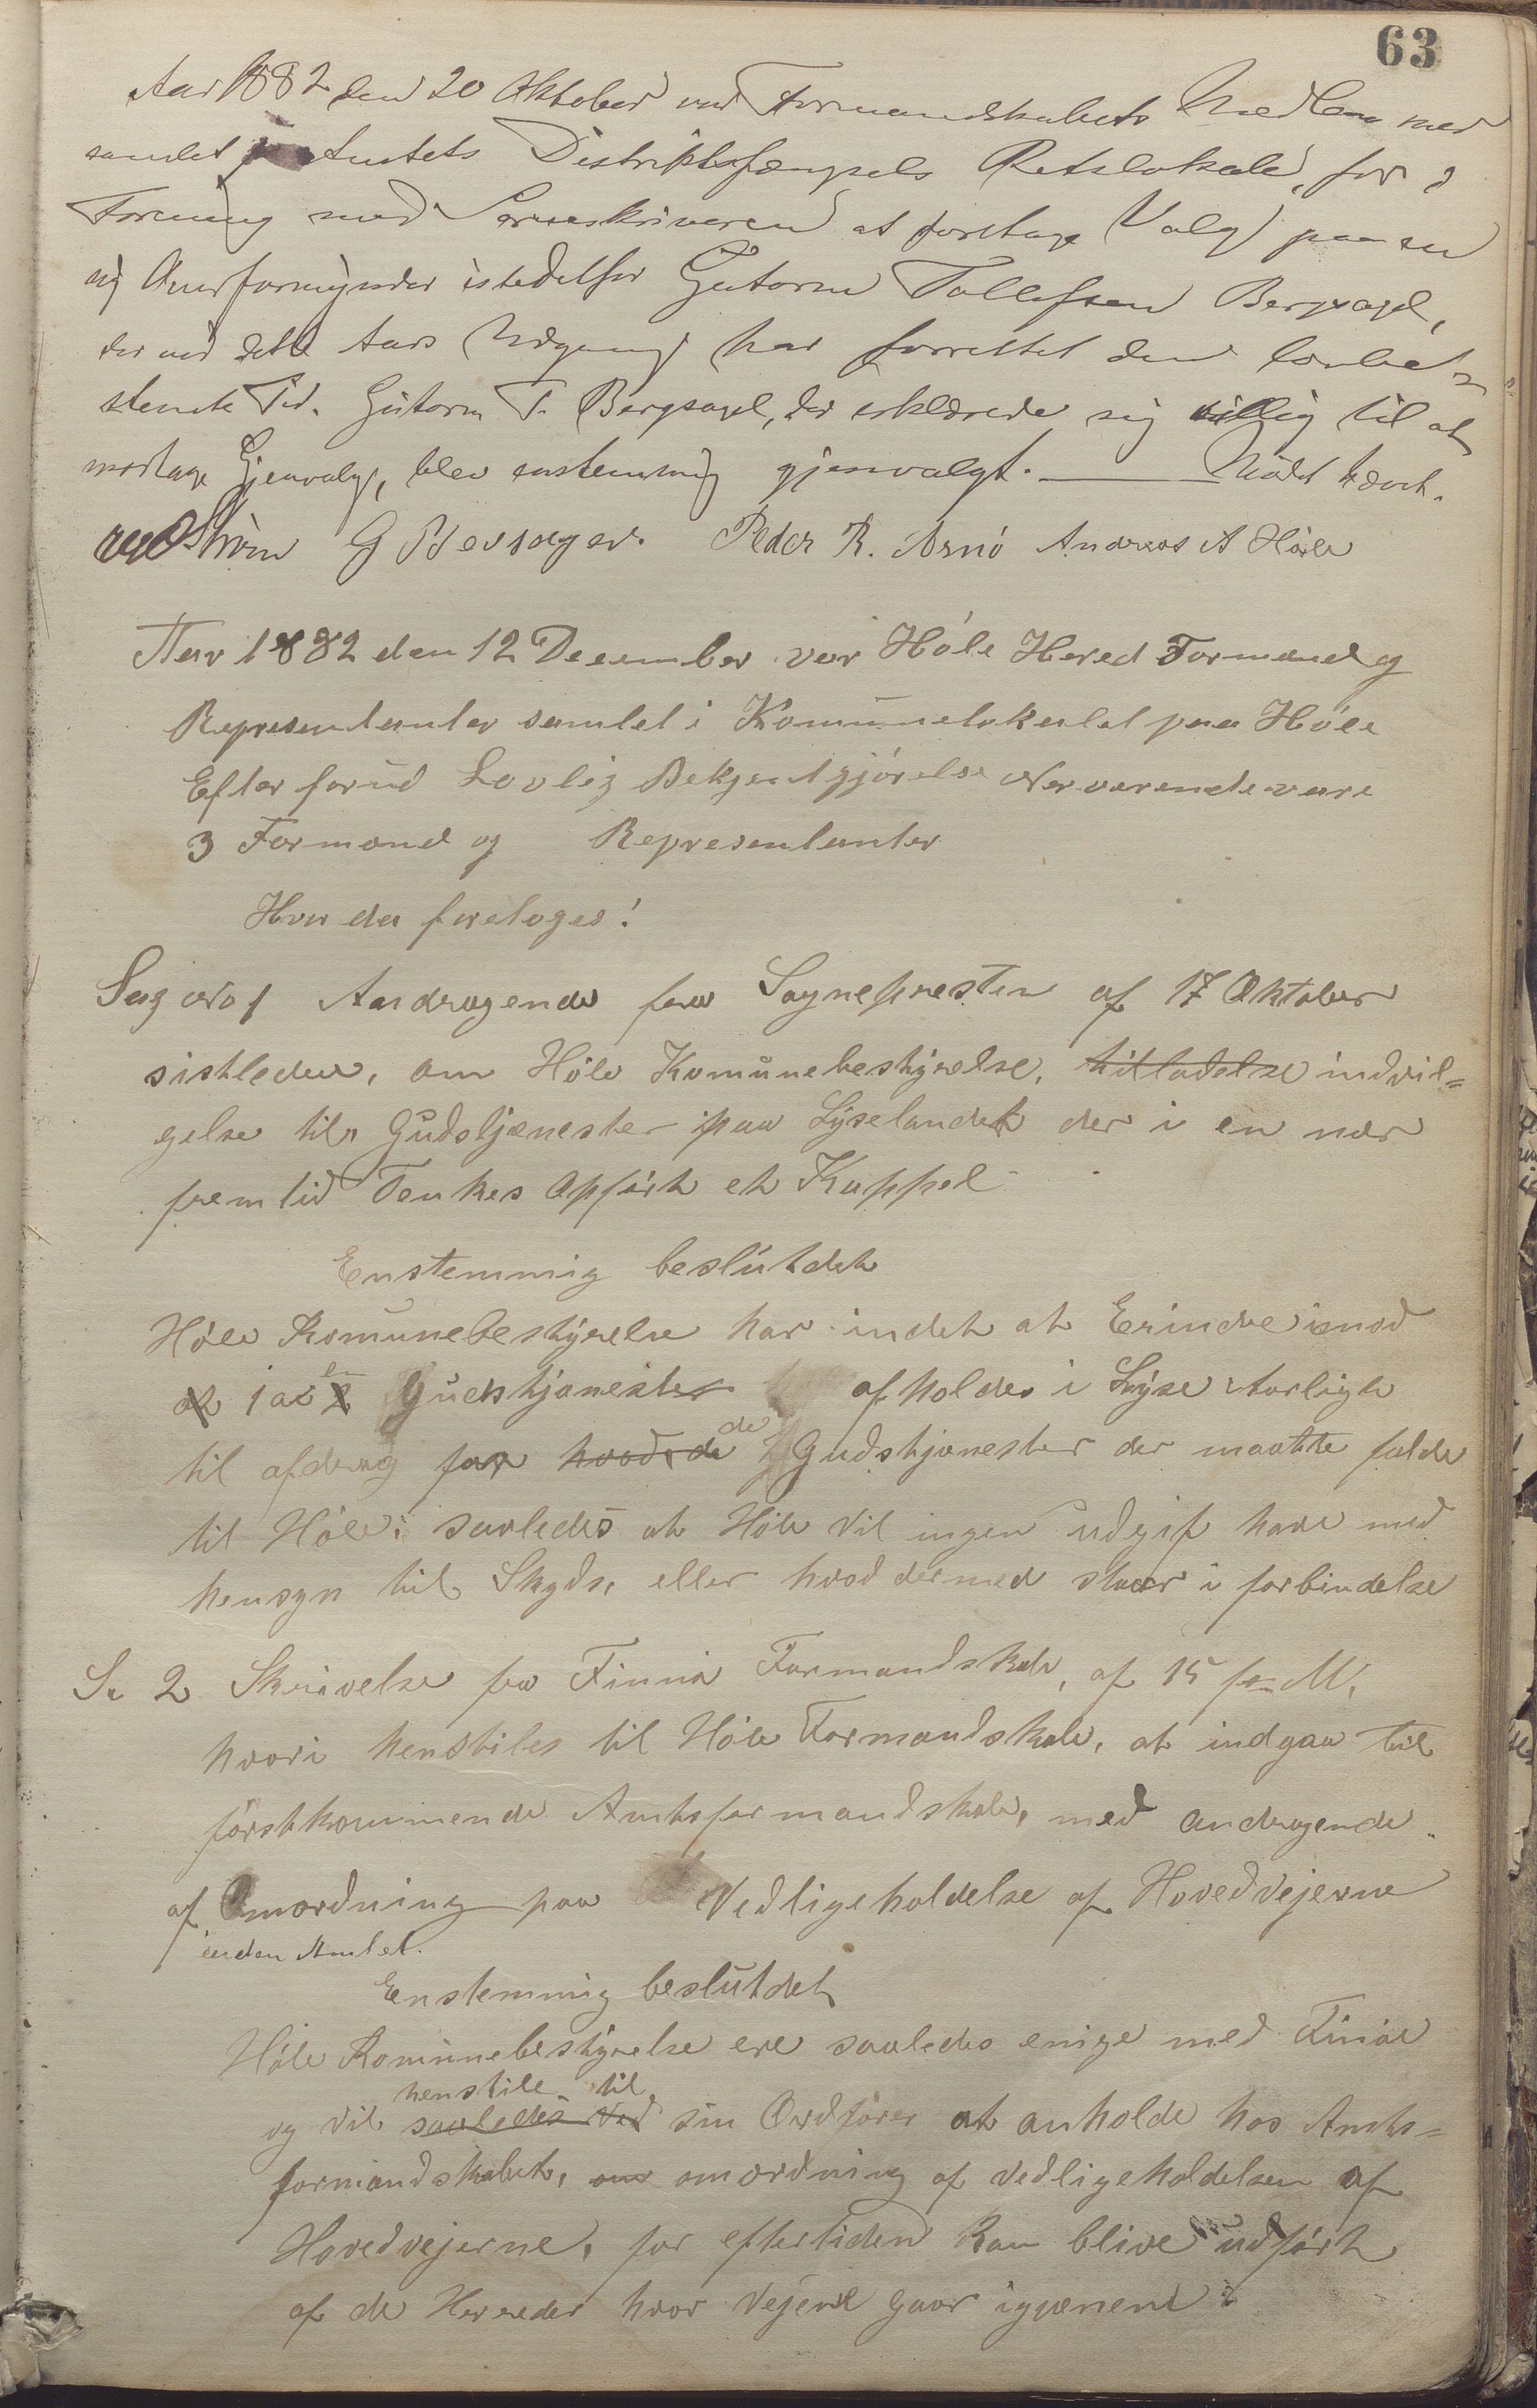 63
Aar 1882 den 20 Oktober var Formandskabets Medlem med
samlet Amtets Distriktsfængsels Retslokale, for i
Forening med Sorenskriveren at foretage Valg paa en
ny Overformynder istedetfor Gutorm Tollefsen Bergsagel,
der ved dette Aars Udgang har forrettet den lovbe-
stemte Tid. Gutorm T. Bergsagel, der erklærede sig villig til at
modtage Gjenvalg, blev enstemmig gjenvalgt. Mødet hævet.
Strøm G Bersagel. Peder R. Arnö Andreas A Höle
Aar 1882 den 12 December var Höle Hered Formænd og
Representanter samlet i Komunelokalet paa Höle
Efter forud Lovlig Bekjentgjörelse Nerværende vare
3 Formænd og Representanter
Hvor da foretoges!
Sag No 1 Andragende fra Sognepresten af 17 Oktober
sistleden, om Höle Komunebestyrelse, tilladelse indvil=
gelse til Gudstjænester paa Lyselandet der i en nær
fremtid Tenkes Opfört et Kappel
Enstemmig beslutdet
Höle Komunebestyrelse har indet at Erindre imod
at 1 a 2 en Gudstjænester afholdes i Lyse Aarligt
til afdrag for hvad de de Gudstjænester der maatte falde
til Höle; saaledes at Höle vil ingen udgift have med
hensyn til Skyds, eller hvad dermed staar i forbindelse
S. 2 Skrivelse fra Finnö Formandskab, af 15 f. M.
hvori henstiles til Höle Formandskab, at indgaa til
förstkommende Amtsformandskab, med andragende
af Omordning paa Vedligeholdelse af Hovedvejerne
inden Amtet.
Enstemmig beslutdet
Höle Komunebestyrelse ere saaledes enige med Finnö
henstile til
og vil saaledes ved sin Ordförer at anholde hos Amts=
formandskabet, om omordning af vedligeholdelsen af
Hovedvejerne, for eftertiden kan blive udfört
af de Hereder hvor Vejene gaar igjænem